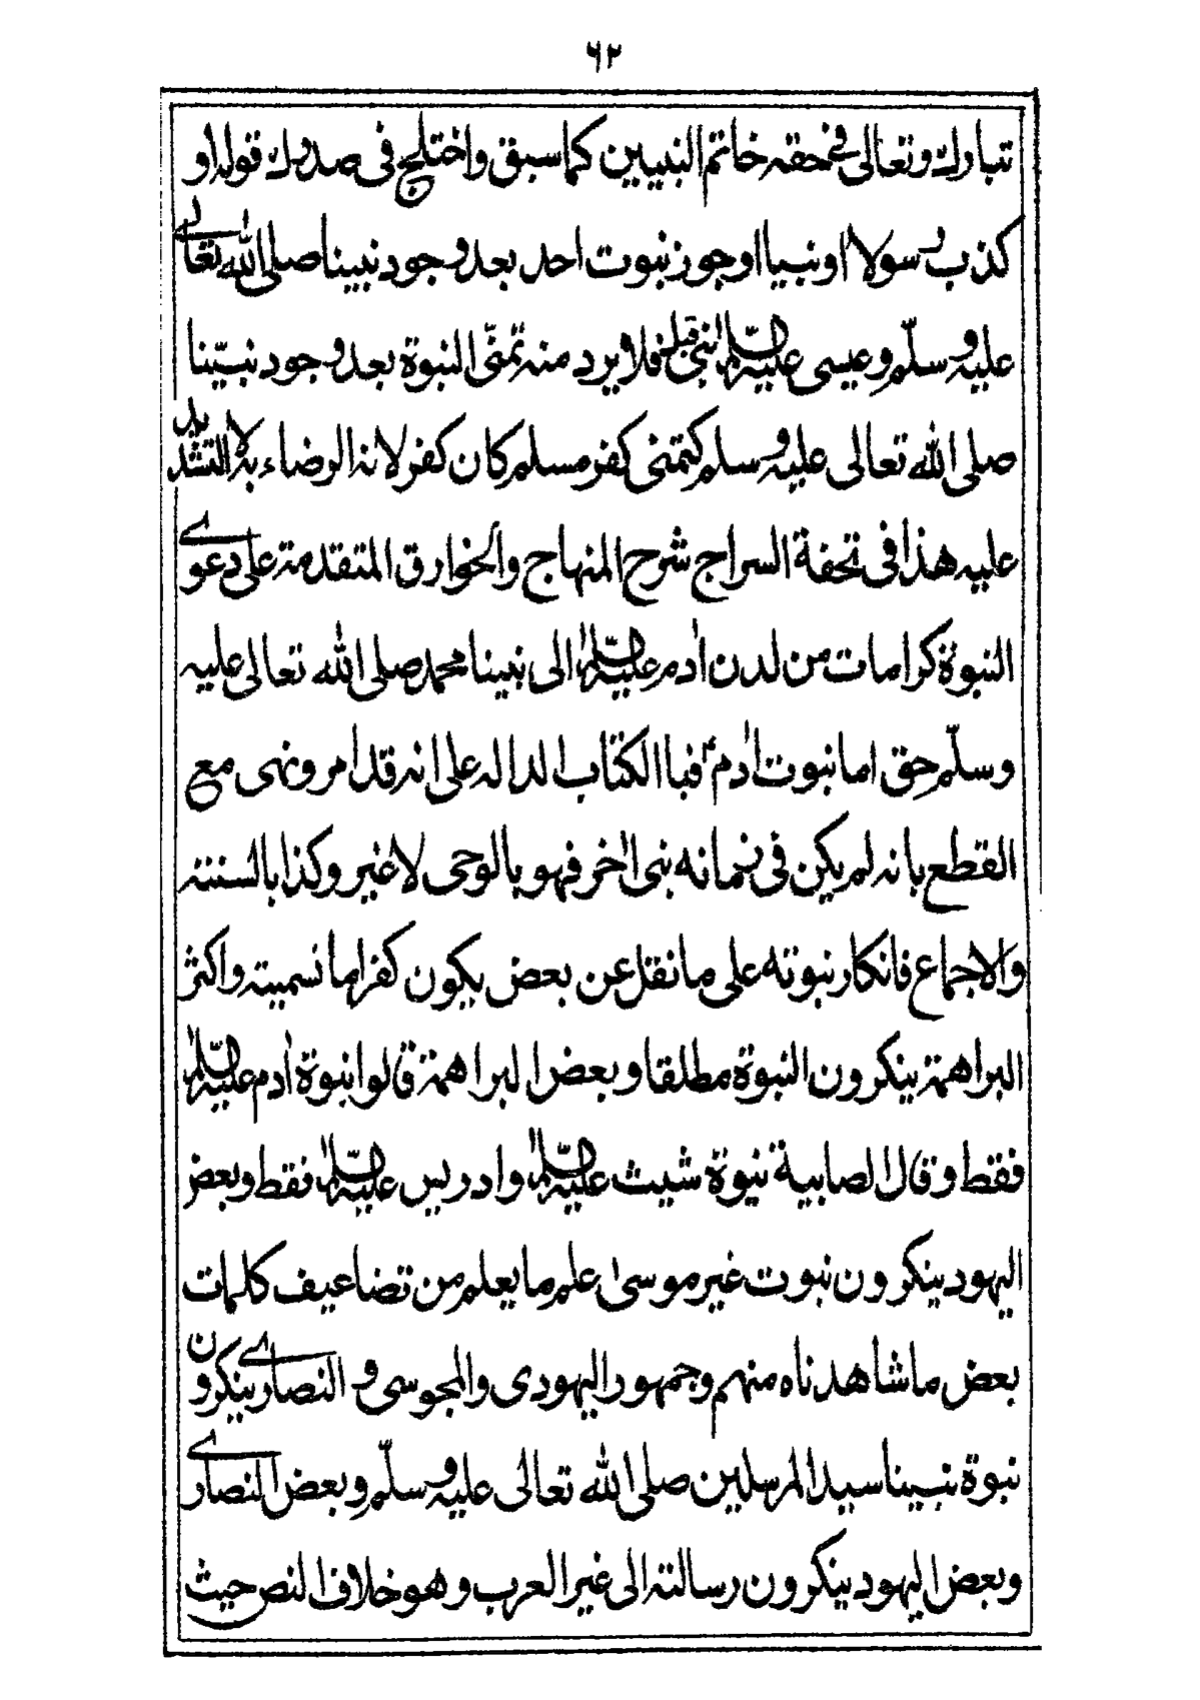 ٦٢
تبارك وتعالى فى حقه خاتم النبيين كما سبق واختلج فى صدرك قوله او
كذب رسولا او نبيا او جوز نبوت احد بعد وجود نبينا صلى الله تعالى
عليه وسلّم وعيسى عليه السّلام نبى قبل فلا يرد منه تمنّى النبوة بعد وجود نبيّنا
صلى الله تعالى عليه وسلم كتمنى كفر مسلم كان كفر لانه الرضاء به لا التشديد
عليه هذا فى تحفة السراج شرح المنهاج والخوارق المتقدمة على دعوى
النبوة كرامات من لدن اٰدم عليه السّلام الى نبينا محمد صلى الله تعالى عليه
وسلّم حق اما نبوت اٰدمؑ فبا الكتاب الداله على انه قد امر ونهى مع
القطع بانه لم يكن فى زمانه نبى اٰخر فهو بالوحى لا غير وكذا بالسنته
والاجماع فانكار نبوته على ما نقل عن بعض يكون كفرا ما نسميته واكثر
البراهمة ينكرون النبوة مطلقا وبعض البراهمة قالوا بنبوة اٰدم عليه السّلام
فقط وقال الصابية نبوة شيث عليه السّلام وادريس عليه السّلام فقط وبعض
اليهود ينكرون نبوت غير موسىٰ علم ما يعلم من تضاعيف كلمات
بعض ما شاهدناه منهم وجمهور اليهودى والمجوسى و النصارى ينكرون
نبوة نبينا سيد المرسلين صلى الله تعالى عليه وسلّم وبعض النصارى
وبعض اليهود ينكرون رسالته الى غير العرب وهو خلاف النص حيث